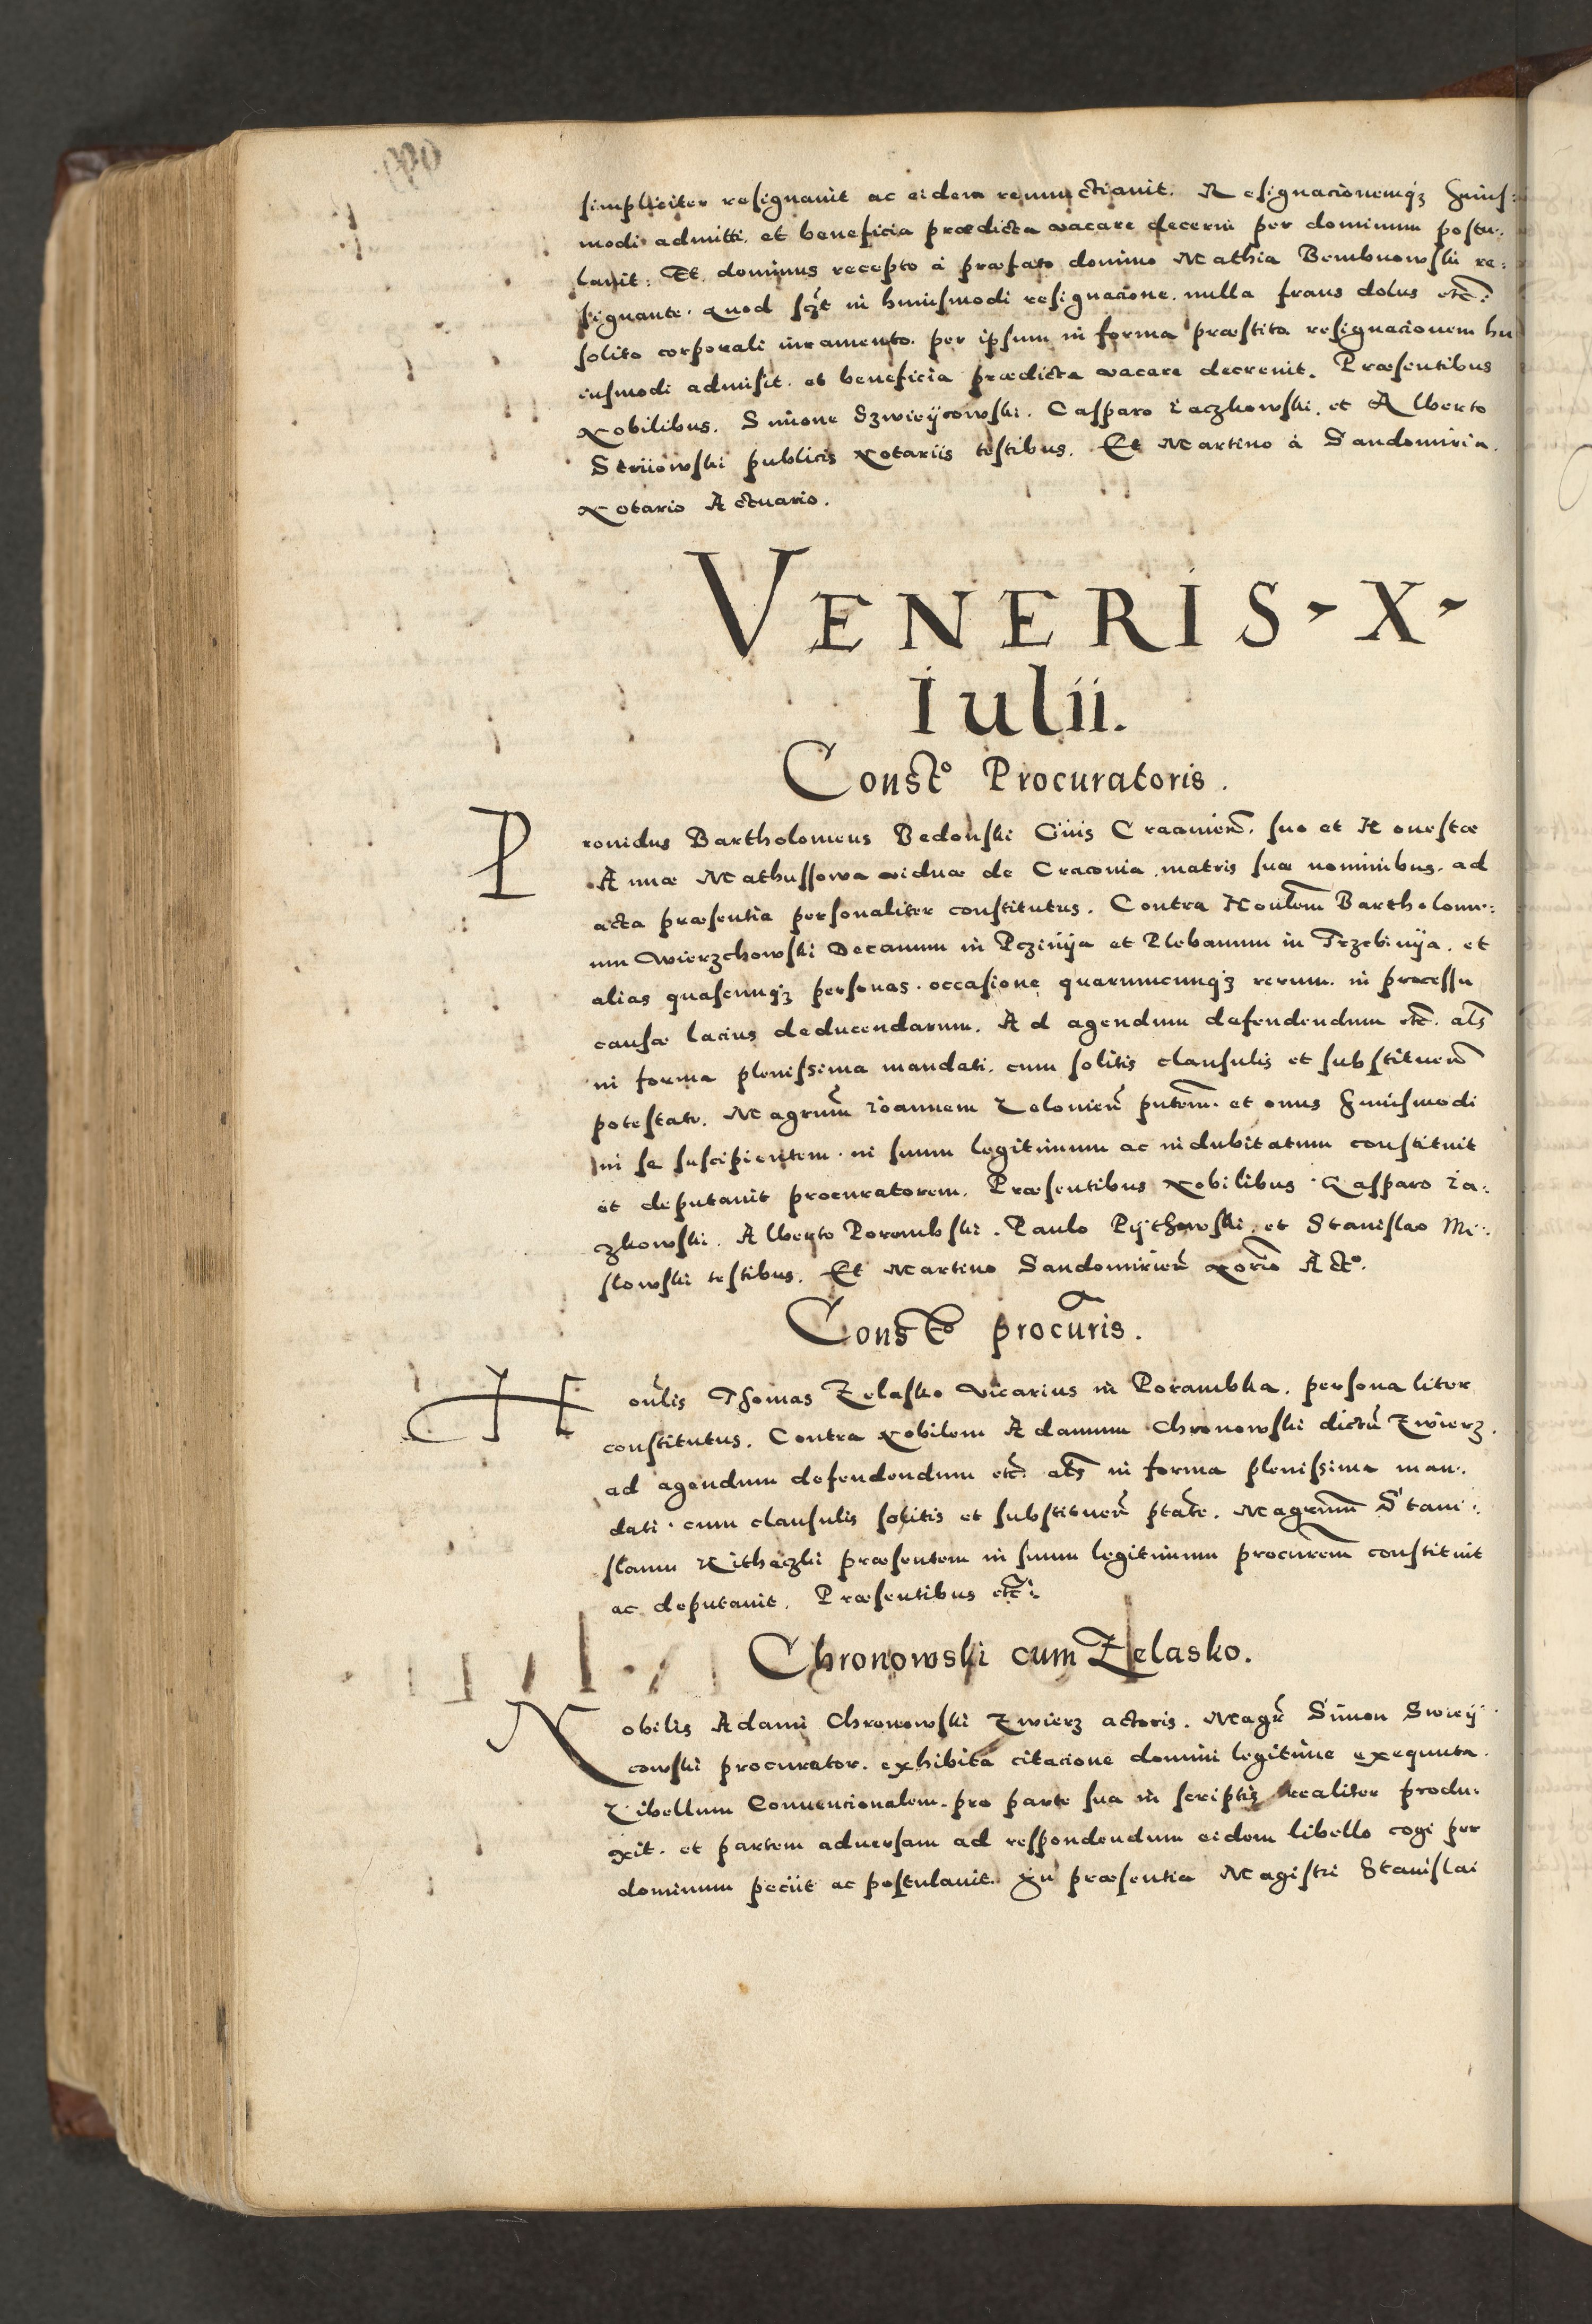 simpliciter resignauit ac eidem renunctiauit. Resignacionemq3 huius:
modi admitti et beneficia prædicta vacare decerni per dominum postu:
lauit: Et dominus recepto à præfato domino Mathia Bembnowskÿ re:
signante. quod scʒt in huiusmodi resignacione nulla fraus dolus etc̃:
solito corporali iuramento. per ipsum in forma præstito resignacionem hu
iusmodi admisit. et beneficia prædicta vacare decreuit. Præsentibus
Nobilibus. Simone Szwieÿcowski. Casparo Iaczkowski. et Alberto
Striiowski publicis Notariis testibus. Et Martino à Sandomiria.
Notario Actuario.
VENERIS - X -
Iulii.
Constᵒ Procuratoris.
Prouidus Bartholomeus Bedonski Ciuis Cracouien̄. suo et Honestæ
Annæ Mathussowa viduæ de Cracouia matris suæ nominibus. ad
acta præsentia personaliter constitutus. Contra Honlem̄ Bartholome:
um Wierzchowski Decanum in Pczinÿa et Plebanum in Trzebinÿa. et
alias quascunq3 personas. occasione quarumcunq3 rerum. in processu
causæ lacius deducendarum. Ad agendum defendendum etc̃. als̄
in forma plenissima mandati. cum solitis clausulis et substituen̄
potestate. Magrum̄ Ioannem Zelonien̄ pntem̄. et onus huiusmodi
in se suscipientem. in suum legitimum ac indubitatum constituit
et deputauit procuratorem. Præsentibus Nobilibus Casparo Ia:
czkowski. Alberto Porembski. Paulo Pÿthowski. et Stanislao Mi:
slowski testibus. Et Martino Sandomirien̄ Norio̅ Actᵒ.
Constᵒ procuris̄.
Honl̄is Thomas Zelasko Vicarius in Porambka. personaliter
constitutus. Contra Nobilem Adamum Chronowski dictū Zwierz.
ad agendum defendendum etc̃. als̄ in forma plenissima man:
dati. cum clausulis solitis et substituen̄ ptate̅. Magrum̄ Stani:
slaum Rithaczki præsentem in suum legitimum procurem̄ constituit
ac deputauit. Præsentibus etc̃:
Chronowski cum Zelasko.
Nobilis Adami Chronowski Zwierz actoris. Magr̄ Simon Swieÿ
cowski procurator. exhibita citacione domini legitime exequuta.
Libellum Conuencionalem. pro parte sua in scriptis realiter produ:
xit. et partem aduersam ad respondendum eidem libello cogi per
dominum peciit ac postulauit. In præsentia Magistri Stanislai